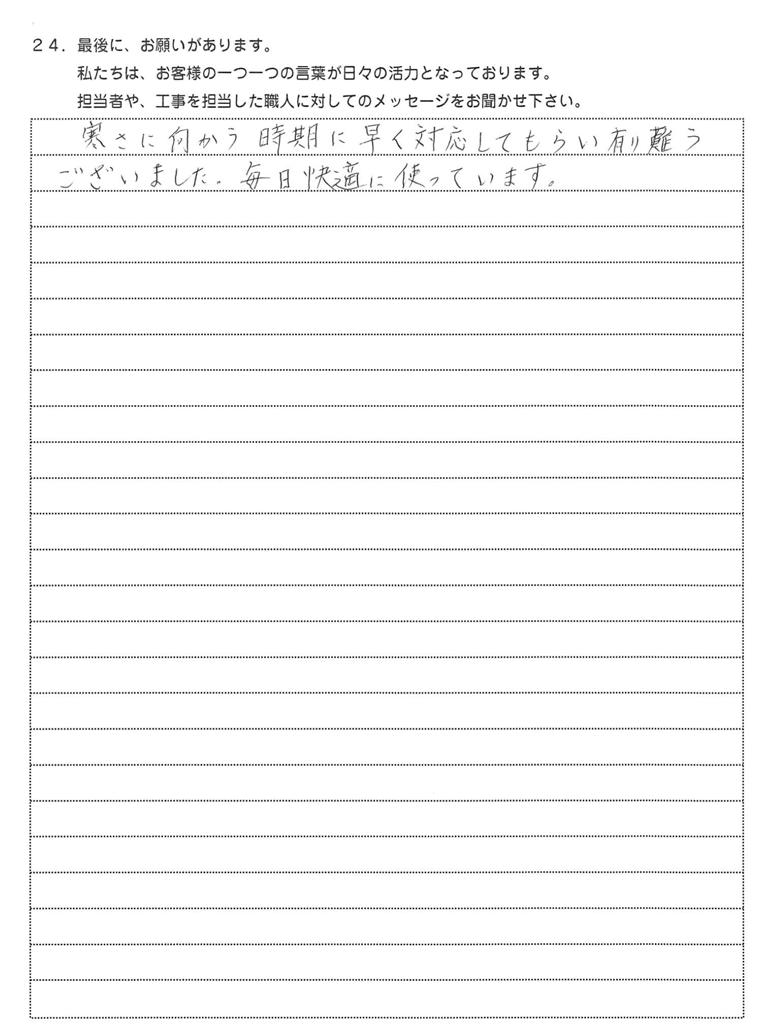 ２４．最後に、お願いがあります。
私たちは、お客様の一つ一つの言葉が日々の活力となっております。
担当者や、工事を担当した職人に対してのメッセージをお聞かせ下さい。
寒さに向かう時期に早く対応してもらい有り難う
ございました。毎日快適に使っています。